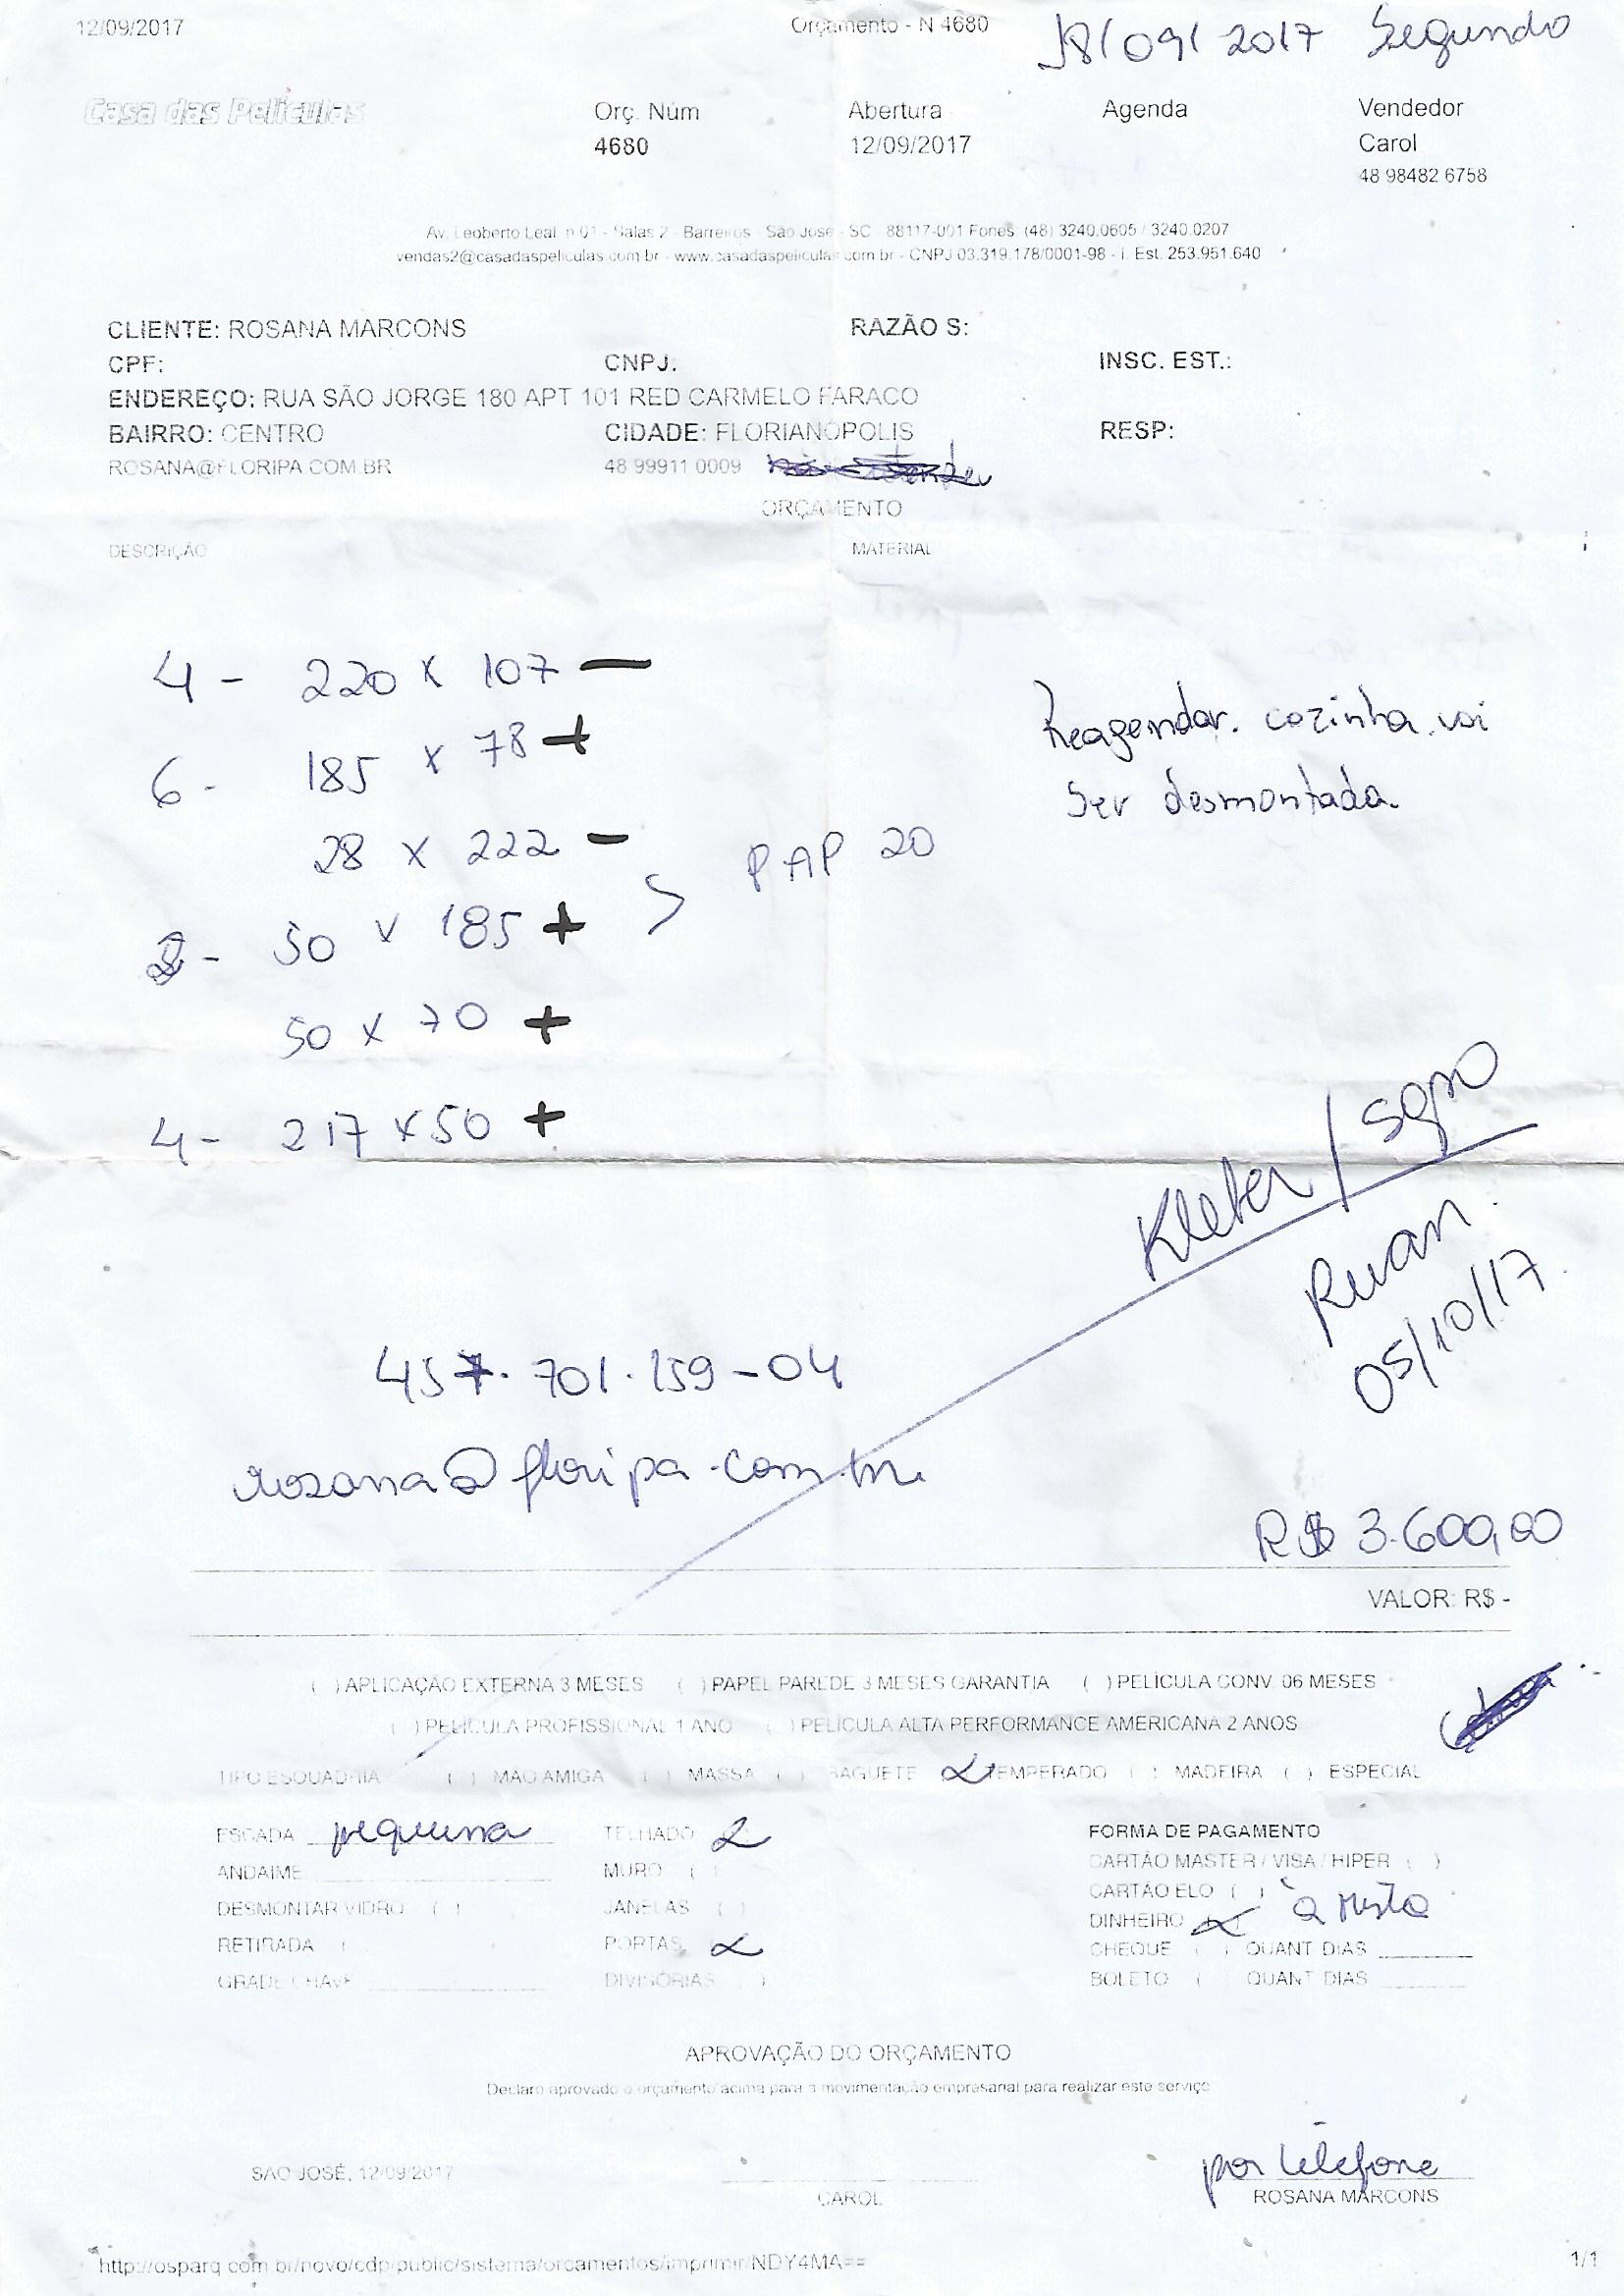 12/09/2017 Orçamento - N 4680
18/09/2017 Segundo
Casa das Películas Orç. Núm Abertura Agenda Vendedor
4680 12/09/2017 Carol
48 98482 6758
Av. Leoberto Leal n 01 - Salas 2 - Barreiros - São José - SC - 88117-001 Fones: (48) 3240.0605 / 3240.0207
vendas2@casadaspeliculas.com.br - www.casadaspeliculas.com.br - CNPJ 03.319.178/0001-98 - I. Est. 253.951.640
CLIENTE: ROSANA MARCONS RAZÃO S:
CPF: CNPJ: INSC. EST.:
ENDEREÇO: RUA SÃO JORGE 180 APT 101 RED CARMELO FARACO
BAIRRO: CENTRO CIDADE: FLORIANÓPOLIS RESP:
ROSANA@FLORIPA.COM.BR 48 99911 0009
ORÇAMENTO
DESCRIÇÃO MATERIAL
4 - 220 x 107 -
6 - 185 x 78 +
28 x 222 -
- 50 x 185 +
50 x 70 +
4 - 217 x 50 +
> PAP 20
Reagendar. cozinha vai
ser desmontada.
Kleber /
Ruan.
05/10/17.
457.701.159-04
rosana@floripa.com.br
R$ 3.600,00
VALOR: R$ -
( ) APLICAÇÃO EXTERNA 3 MESES ( ) PAPEL PAREDE 3 MESES GARANTIA ( ) PELÍCULA CONV. 06 MESES
( ) PELÍCULA PROFISSIONAL 1 ANO ( ) PELÍCULA ALTA PERFORMANCE AMERICANA 2 ANOS
TIPO ESQUADRIA ( ) MÃO AMIGA ( ) MASSA ( ) BAGUETE (x) TEMPERADO ( ) MADEIRA ( ) ESPECIAL
ESCADA pequena TELHADO x FORMA DE PAGAMENTO
ANDAIME MURO ( ) CARTÃO MASTER / VISA / HIPER ( )
DESMONTAR VIDRO ( ) JANELAS ( ) CARTÃO ELO ( ) à vista
RETIRADA ( PORTAS x DINHEIRO (x)
GRADE CHAVE DIVISÓRIAS ( ) CHEQUE ( ) QUANT DIAS
BOLETO ( ) QUANT DIAS
APROVAÇÃO DO ORÇAMENTO
Declaro aprovado o orçamento acima para a movimentação empresarial para realizar este serviço
SÃO JOSÉ, 12/09/2017 por telefone
CAROL ROSANA MARCONS
http://osparq.com.br/novo/cdp/public/sistema/orcamentos/imprimir/NDY4MA== 1/1